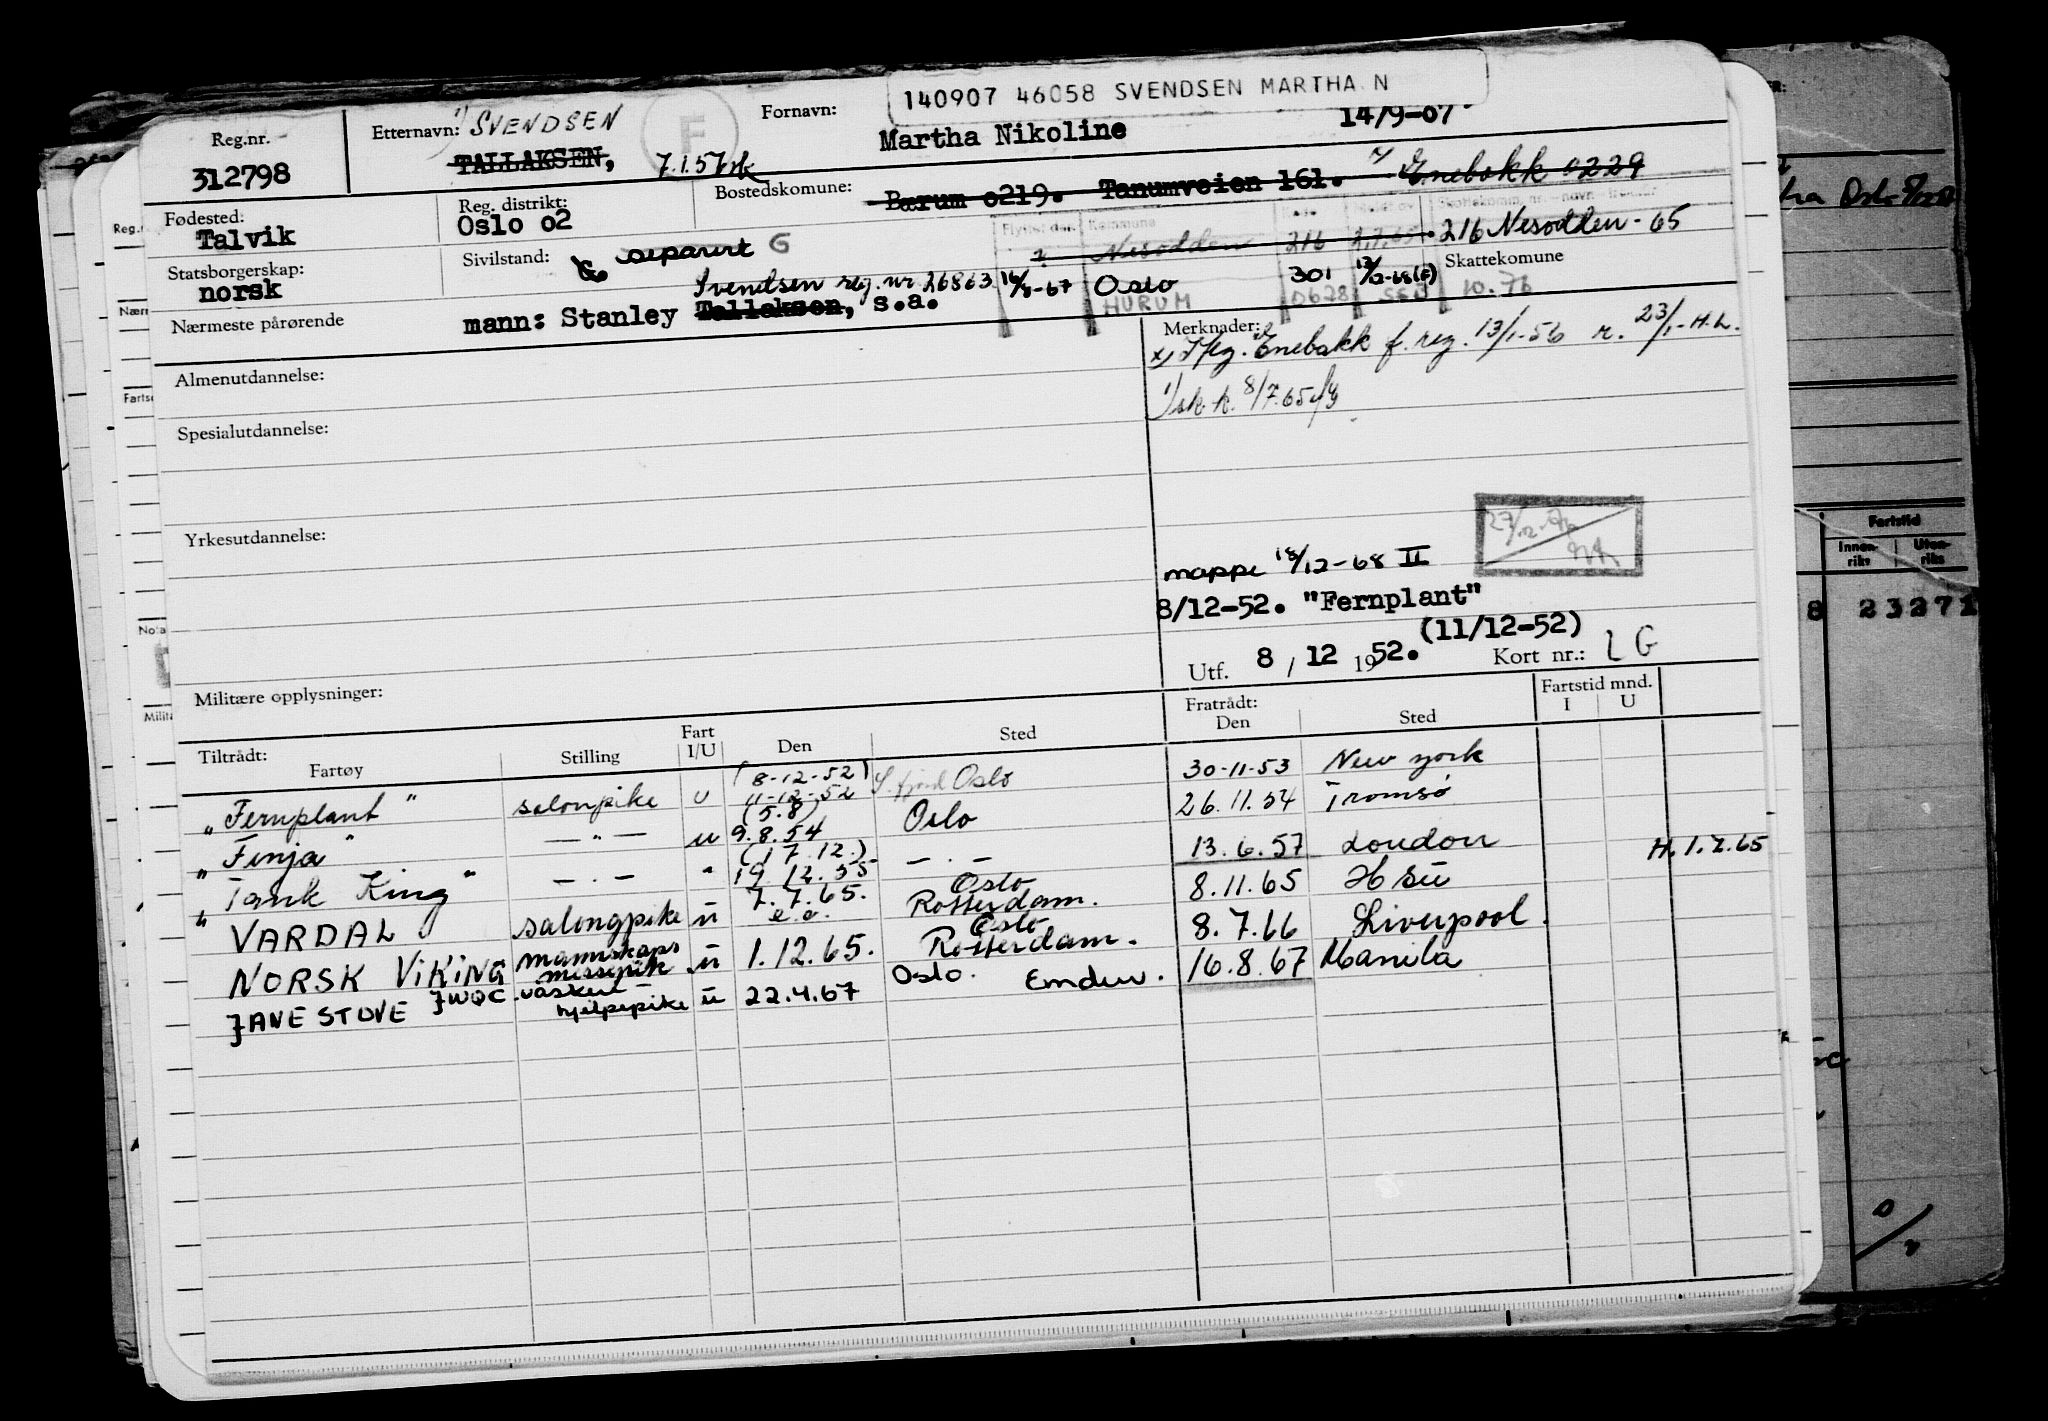 140907 46058 SVENDSEN MARTHA N
Reg.nr.
312798
Etternavn: 1) SVENDSEN
TALLAKSEN, 7.1.57
F
Fornavn:
Martha Nikoline
14/9-07
Fødested:
Talvik
Reg. distrikt:
Oslo 02
Bostedskomune:
Bærum 0219. Tanumveien 161. Enebakk 0229
Statsborgerskap:
norsk
Sivilstand:
separert G
Flyttet den Kommune
Nesodden 216 2.7.65
216 Nesodden - 65
16/8-67 Oslo 301 12/12-68 (F)
Skattekomune
HURUM 0628 SEN 10.76
Nærmeste pårørende
Svendsen reg. nr 26863
mann: Stanley Tallaksen, s.a.
Merknader:
x) Flg. Enebakk f. reg. 13/1-56 r. 23/1- H.L.
1) sk.k. 8/7.65
Almenutdannelse:
Spesialutdannelse:
Yrkesutdannelse:
27/12
mappe 18/12-68 II
8/12-52. "Fernplant"
(11/12-52)
Utf. 8 / 12 1952. Kort nr.: LG
Militære opplysninger:
Tiltrådt:
Fartøy
Stilling
Fart
I/U
Den
Sted
Fratrådt:
Den
Sted
Fartstid mnd.
I U
"Fernplant" salonpike u (8-12-52) 11-12-52 Oslo 30-11-53 New York
"Finja" — " — u (5.8) 9.8.54 Oslo 26.11.54 Tromsø
"Tank King" — . — " (17.12.) 19.12.55 — . — 13.6.57 London H. 1.7.65
VARDAL salongpike u 7.7.65. e.o. Oslo Rotterdam. 8.11.65 H Sü
NORSK VIKING mannskaps messepike u 1.12.65. Oslo Rotterdam. 8.7.66 Liverpool.
JANE STOVE JWQC vaskeri hjelpepike u 22.4.67 Oslo. Emden. 16.8.67 Manila
Fartstid
Innenriks Utenriks
8 23271